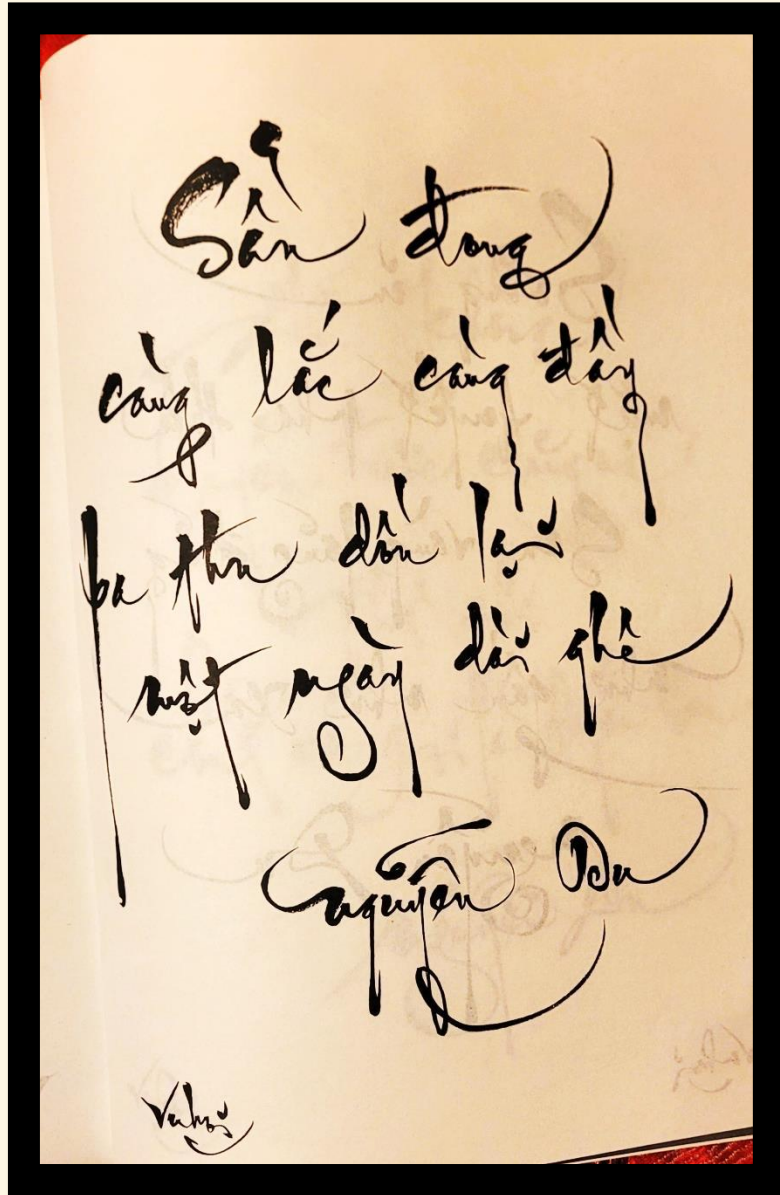 Sầu đong
càng lắc càng đầy
ba thu dồn lại
một ngày dài ghê
Nguyễn Du
Vũ Hối